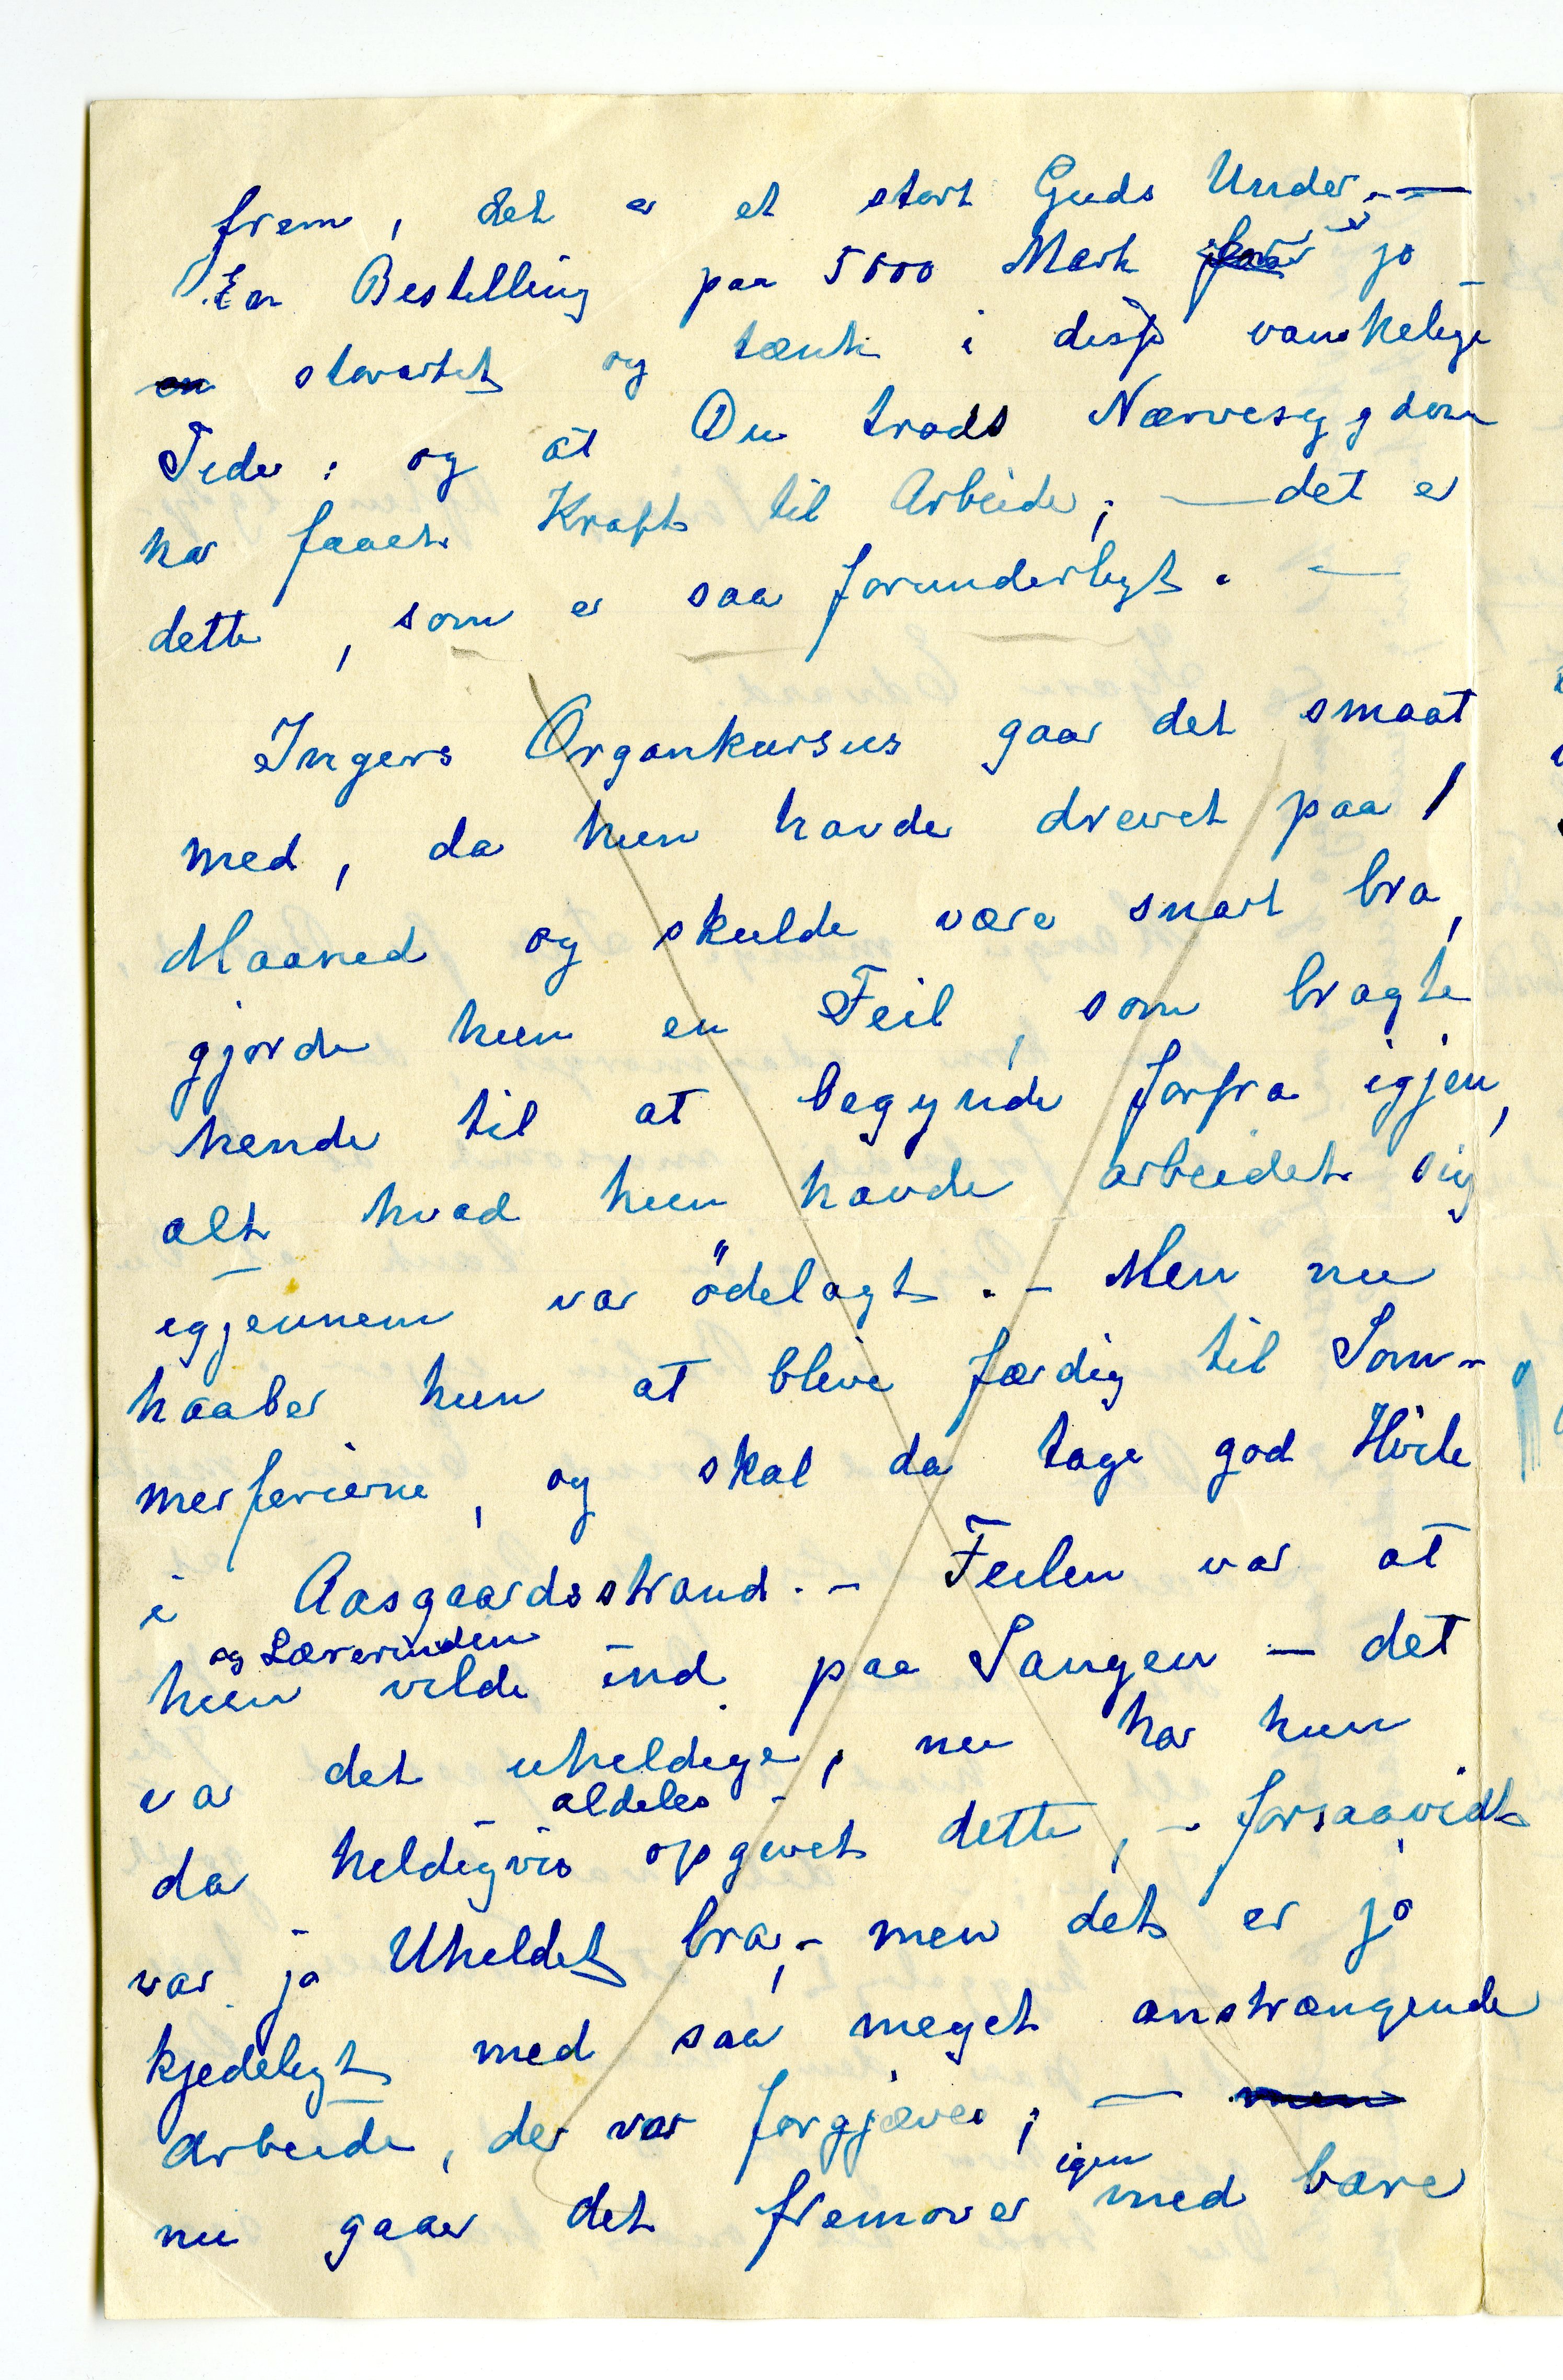 frem, det er et stort Guds Under. —
En Bestilling paa 5000 Mark er jo
storartet og tænk i disse vanskelige
Tider: og at Du trods Nærvesygdom
har faaet Kraft til Arbeide; — det er
dette, som er saa forunderligt. —
Ingers Organkursus gaar det smaat
med, da hun havde drevet paa 1
Maaned og skulde være snart bra,
gjorde hun en Feil, som bragte
hende til at begynde forfra igjen,
alt hvad hun havde arbeidet sig
igjennem var ödelagt. – Men nu
haaber hun at blive færdig til Som-
merferierne, og skal da tage god Hvile
i Aasgaardsstrand. – Feilen var at
og Lærerinden
hun vilde ind paa Sangen – det
var det uheldige, nu har hun
aldeles
da heldigvis opgivet dette, – forsaavidt
var jo Uheldet bra, – men det er jo
kjedeligt med saa meget anstrængende
Arbeide, der var forgjæves; — men
igen
nu gaar det fremover med bare